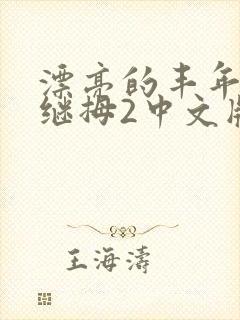 漂亮的丰年
继拇2中文版
王海涛